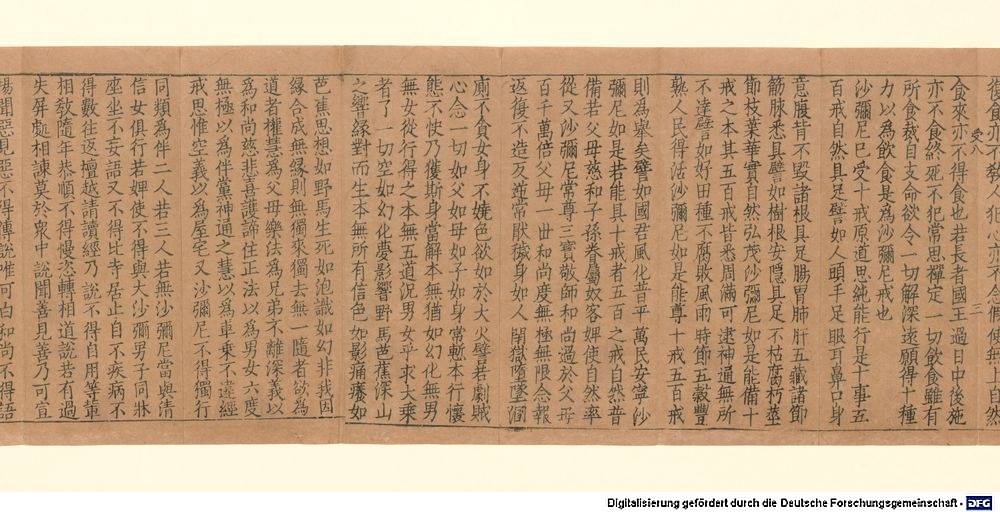 後食亦不教人犯心亦不念假使無上自然
食來亦不得食也若長者國王過日中後施
受八 三
亦不食終死不犯常思禪定一切飲食雖有
所食裁自支命欲令一切解深遠願得十種
力以為飲食是為沙彌尼戒也
沙彌尼已受十戒原道思純能行是十事五
百戒自然具足譬如人頭手足眼耳鼻口身
意腹背不毀諸根具足腸胃肺肝五藏諸節
筋脉悉具譬如樹根安隱具足不枯腐朽莖
節枝葉華實自然弘茂沙彌尼如是能備十
戒之本其五百戒皆悉周滿可逮神通無所
不達譬如好田種不腐敗風雨時節五穀豐
熟人民得活沙彌尼如是能尊十戒五百戒
則為舉矣譬如國君風化昔平萬民安寧沙
彌尼如是若能具十戒者五百之戒自然音
備若父母慈和子孫眷屬奴客婢使自然率
從又沙彌尼常尊三寶敬師和尚過於父母
百千萬倍父母一世和尚度無極無限念報
返復不造反逆常猒穢身如人閉獄墮墜溷
廁不貪女身不嬈色欲如於大火譬若劇賊
心念一切如父如母如子如身常慚本行懷
態不忮乃獲斯身當解本無猶如幻化無男
無女從行得之本無五道況男女乎求大乘
者了一切空如幻化夢影響野馬芭蕉深山
之響緣對而生本無所有信色如影痛癢如
芭蕉思想如野馬生死如泡識如幻非我因
緣合成無緣則無獨來獨去無一隨者欲為
道者權慧為父母樂法為兄弟不離深義以
為和尚慈悲喜護諦住正法以為男女六度
無極以為伴黨神通之慧以為車乘不違經
戒思惟空義以為屋宅又沙彌尼不得獨行
同類為伴二人若三人若無沙彌尼當與清
信女俱行若婢使不得與大沙彌男子同牀
座坐不妄語又不得比寺居止自不疾病不
得數往返檀越請讀經乃說不得自用等輩
相敎隨年恭順不得慢恣轉相道說若有過
失屏處相諫莫於衆中說聞善見善乃可宣
揚聞惡見惡不得傳說唯可白和尚不得語
Digitalisierung gefördert durch die Deutsche Forschungsgemeinschaft - DFG